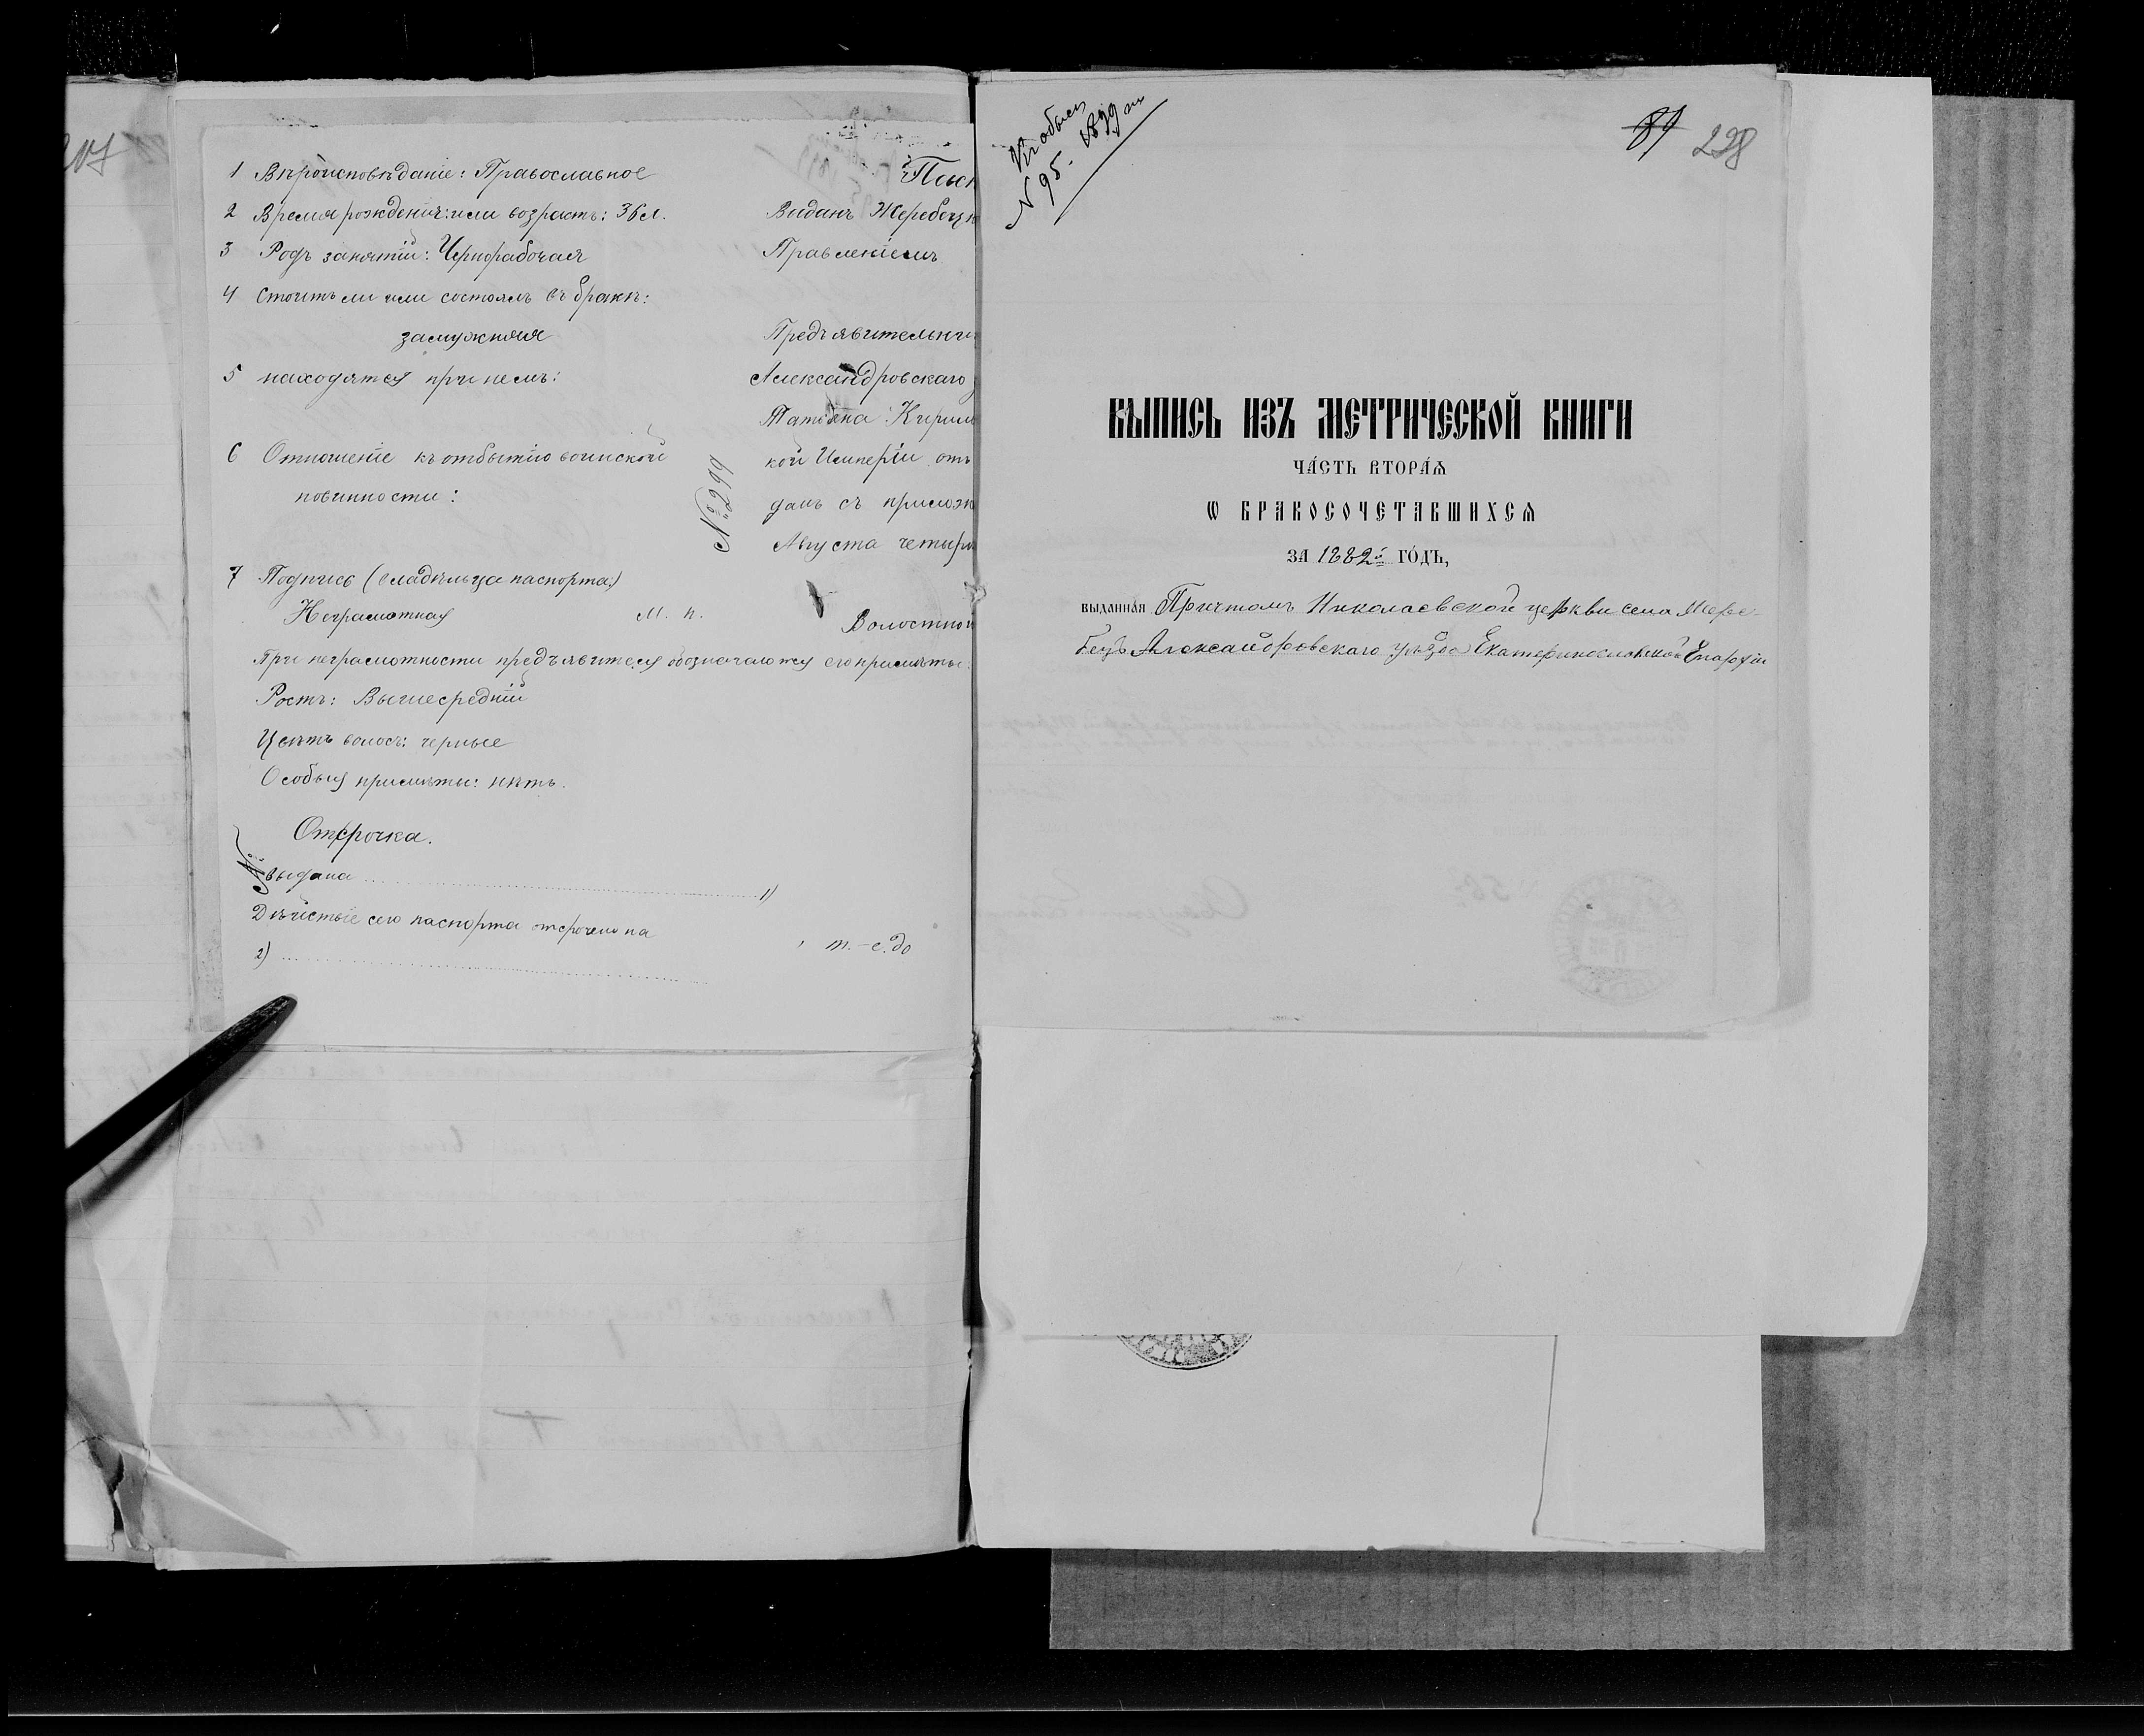 207
1 Вѣроисповѣданіе: Православное
2 Время рожденія или возрастъ: 36 л.
3 Родъ занятій: Чернорабочая
4 Стоитъ ли или состоялъ въ бракѣ:
замужняя
5 находятся при немъ:
6 Отношеніе къ отбытію воинской
повинности:
7 Подпись (владѣльца паспорта)
Неграмотная М. п.
При неграмотности предъявителя обозначаются его примѣты:
Ростъ: Выше средній
Цвѣтъ волосъ: черные
Особыя примѣты: нѣтъ.
Отсрочка.
выдана 1)
Дѣйствіе сего паспорта отсрочено на
2) , т.-е. до
№ 299
Выданъ Жеребецк
Правленіемъ
Предъявительни
Александровскаго
Татьяна Кирил
кой Имперіи отъ
данъ съ прилож
Августа четыр
Волостной
Къ обыску
N 95. 1899
298
ВЫПИСЬ ИЗЪ МЕТРИЧЕСКОЙ КНИГИ
ЧА́СТЬ ВТОРА́Ѧ
Ѡ БРАКОСОЧЕТАВШИХСѦ
ЗА 1882й ГО́ДЪ,
выданнаѧ Причтомъ Николаевской церкви села Жере-
бецъ Александровскаго уѣзда Екатеринославской Епархіи